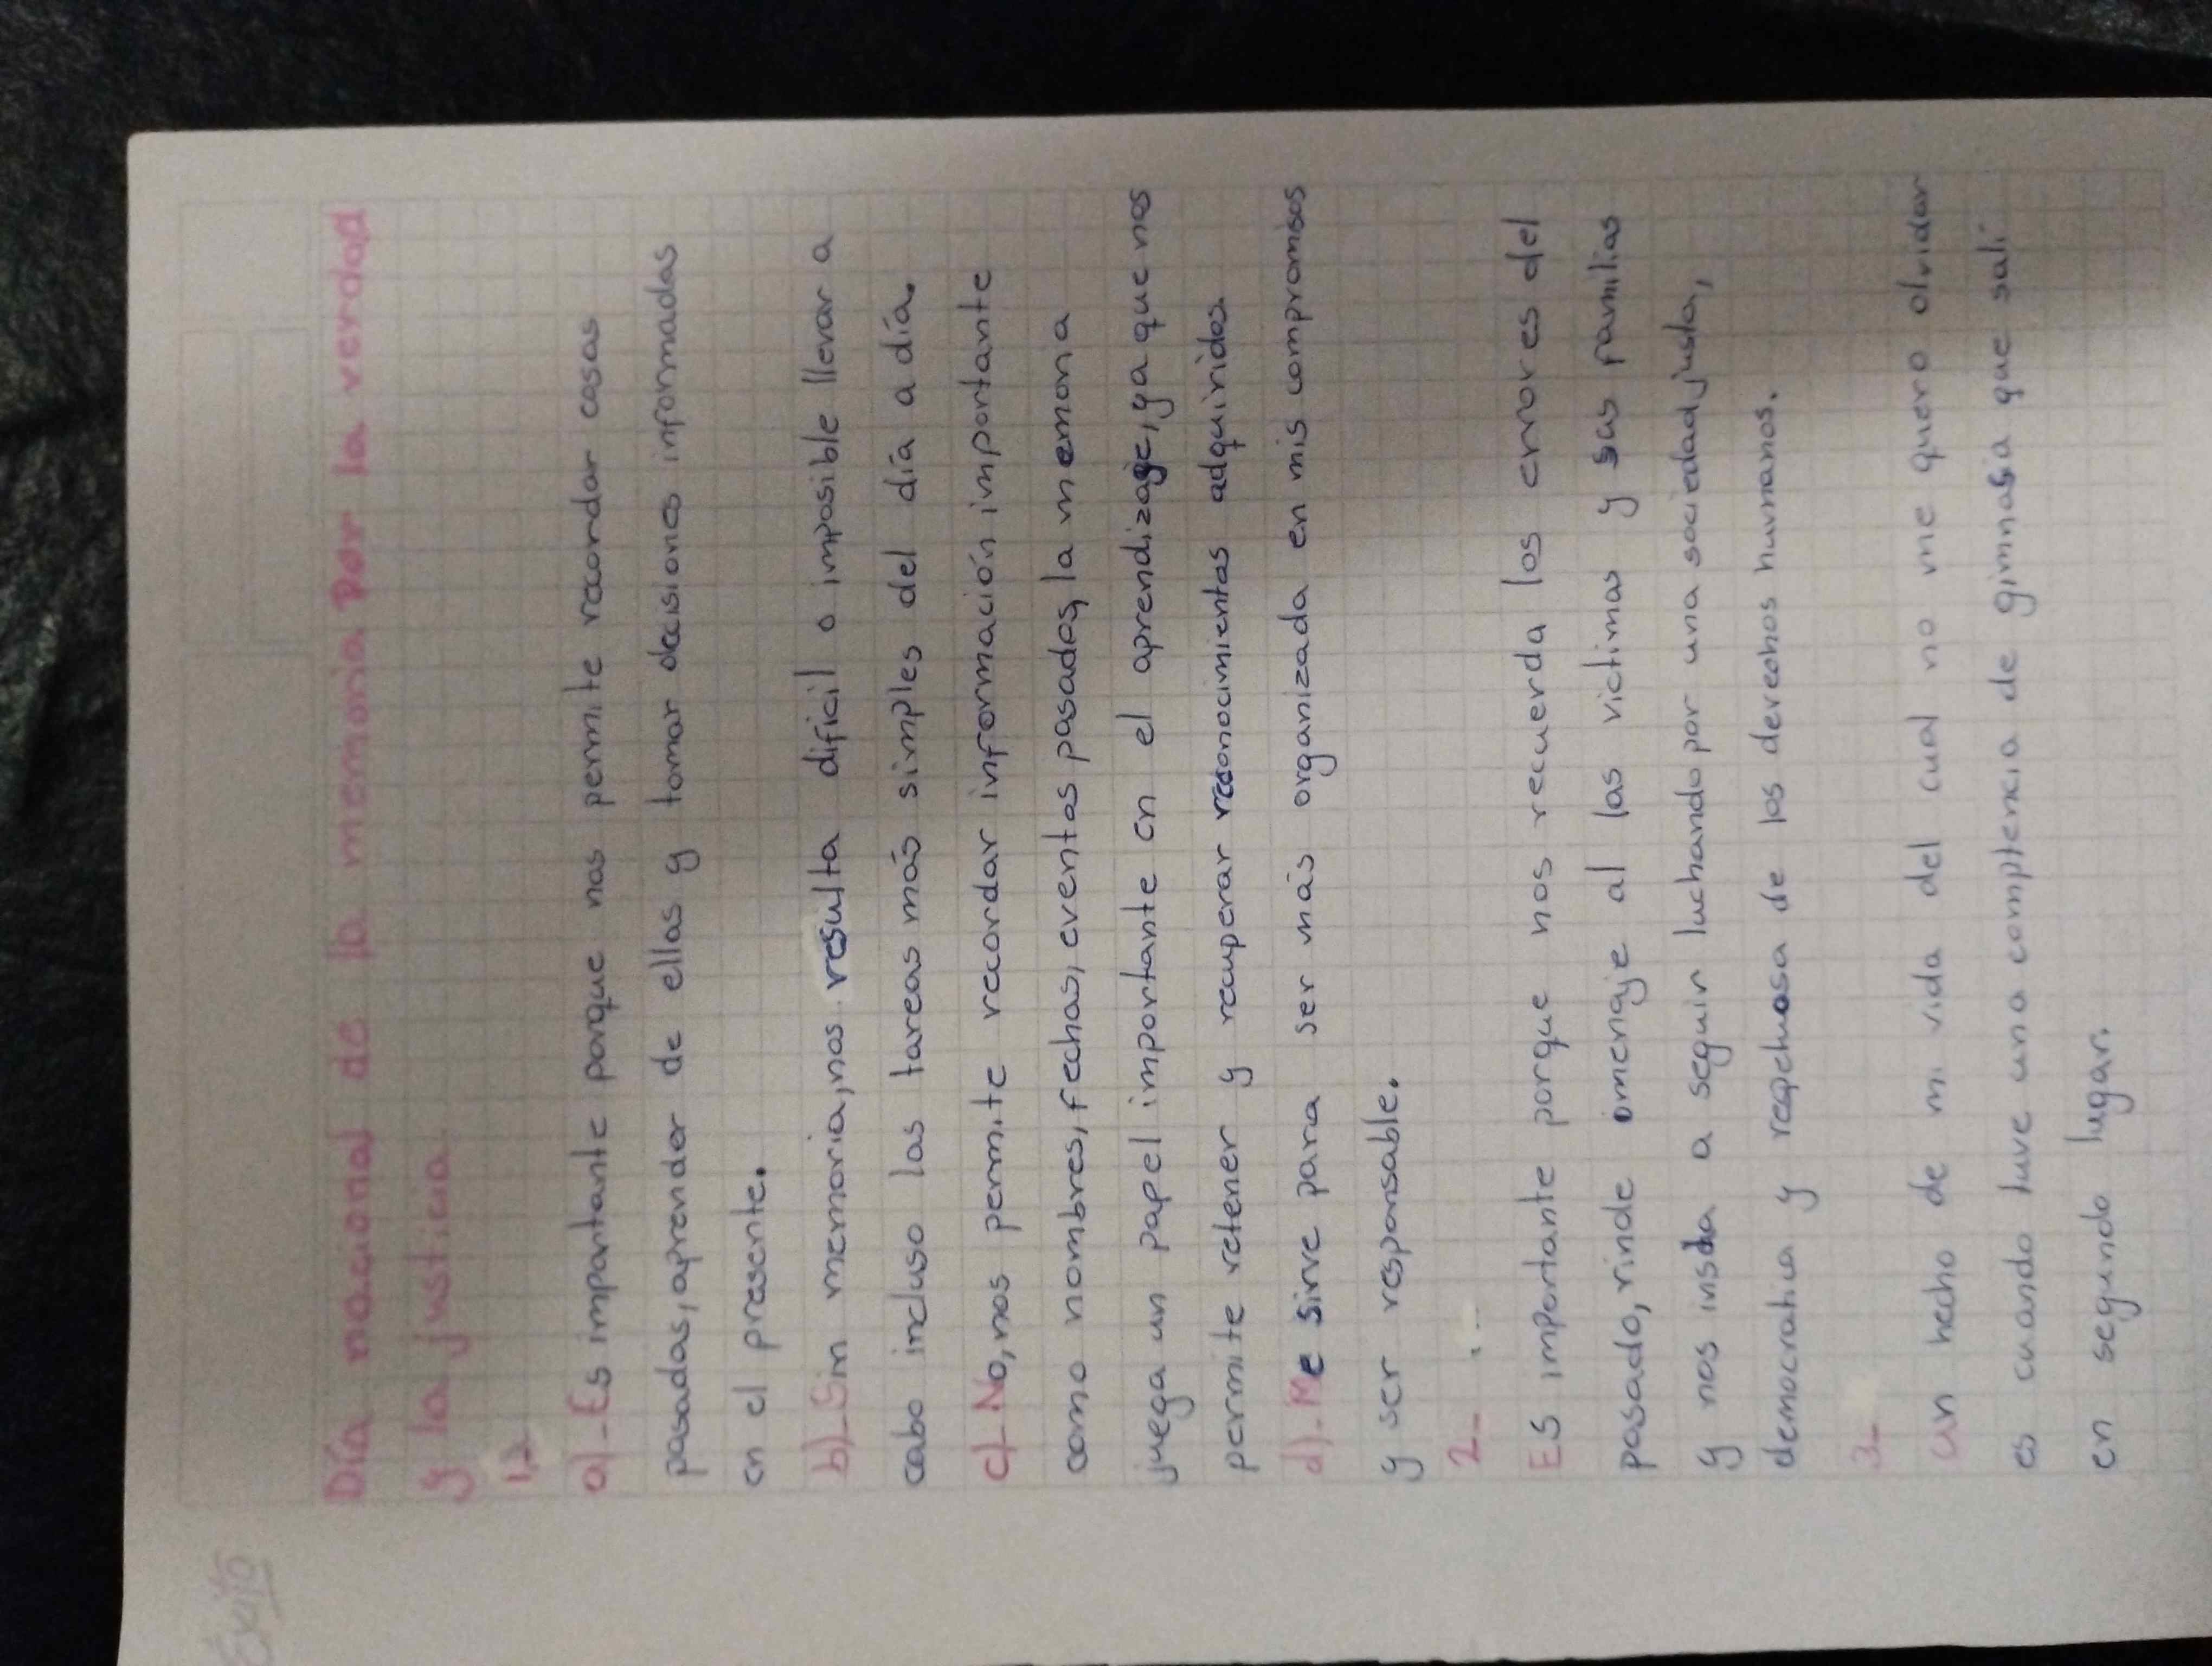 Día nacional de la memoria Por la verdad
y la justicia.
1)
a)-Es importante porque nos permite recordar cosas
pasadas, aprender de ellas y tomar decisiones informadas
en el presente.
b)-Sin memoria, nos resulta dificil o imposible llevar a
cabo incluso las tareas más simples del día a día.
c)-No, nos permite recordar información importante
como nombres, fechas, eventos pasados, la memoria
juega un papel importante en el aprendizage, ya que nos
permite retener y recuperar reconocimientos adquiridos.
d)-Me sirve para ser más organizada en mis compromisos
y ser responsable.
2-
Es importante porque nos recuerda los errores del
pasado, rinde omenaje al las victimas y sus familias
y nos insta a seguir luchando por una sociedad justa,
democratica y respetuosa de los derechos humanos.
3-
un hecho de mi vida del cual no me quero olvidar
es cuando tuve una complencia de gimnasia que salí
en segundo lugar.